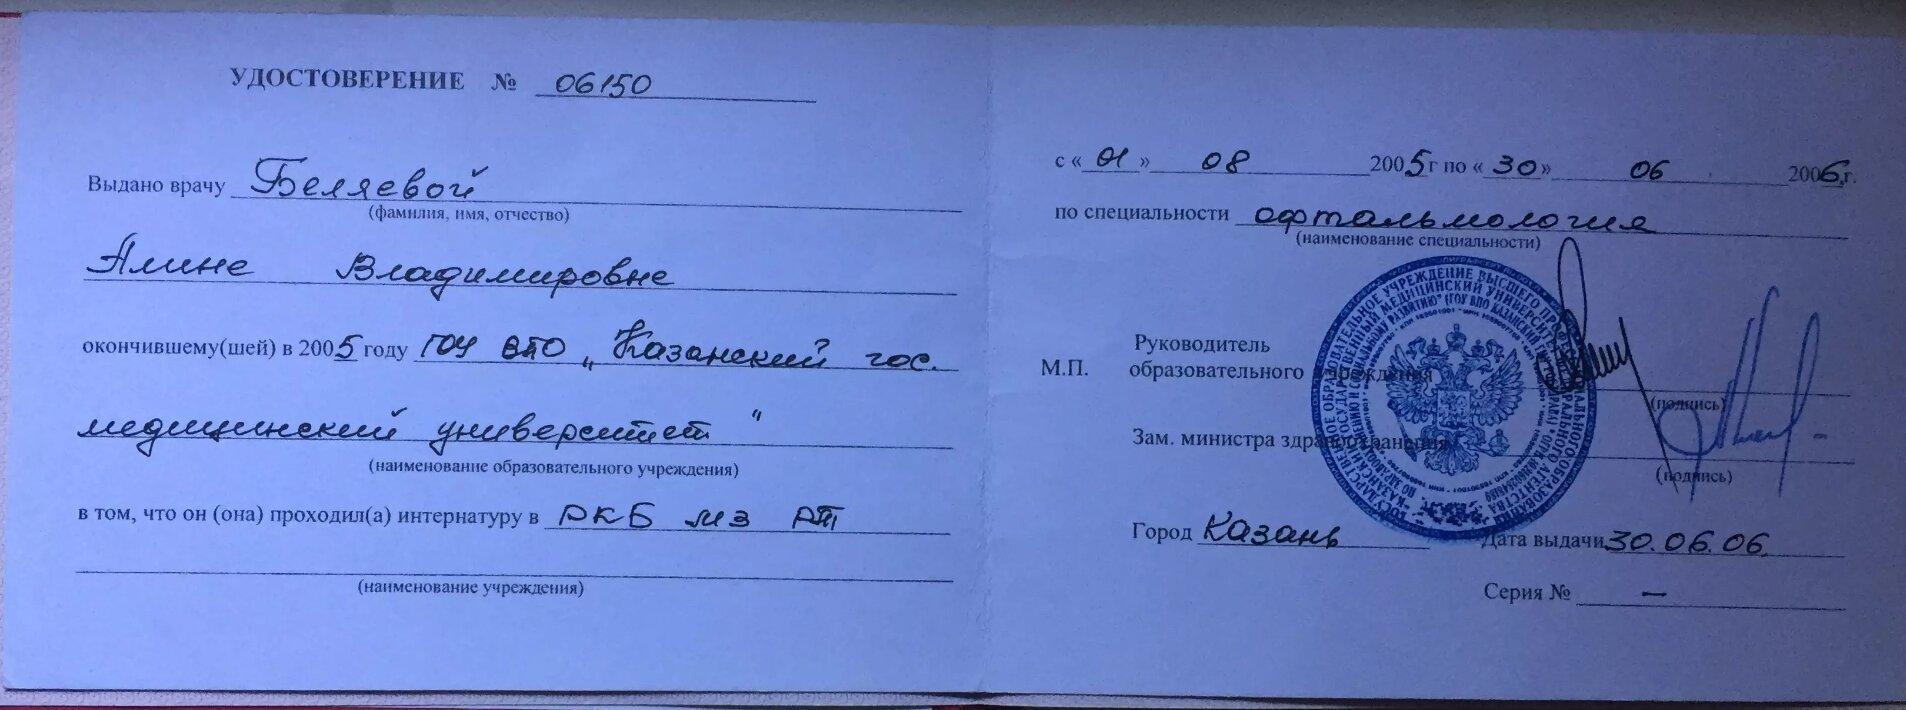 УДОСТОВЕРЕНИЕ № 06150
Выдано врачу Беляевой
(фамилия, имя, отчество)
Алине Владимировне
окончившему(шей) в 2005 году ГОУ ВПО „Казанский гос.
медицинский университет"
(наименование образовательного учреждения)
в том, что он (она) проходил(а) интернатуру в РКБ МЗ РТ
(наименование учреждения)
с «01» 08 2005г по «30» 06 2006г.
по специальности офтальмология
(наименование специальности)
Руководитель
М.П. образовательного учреждения
(подпись)
Зам. министра здравоохранения
(подпись)
Город Казань Дата выдачи 30.06.06.
Серия № —